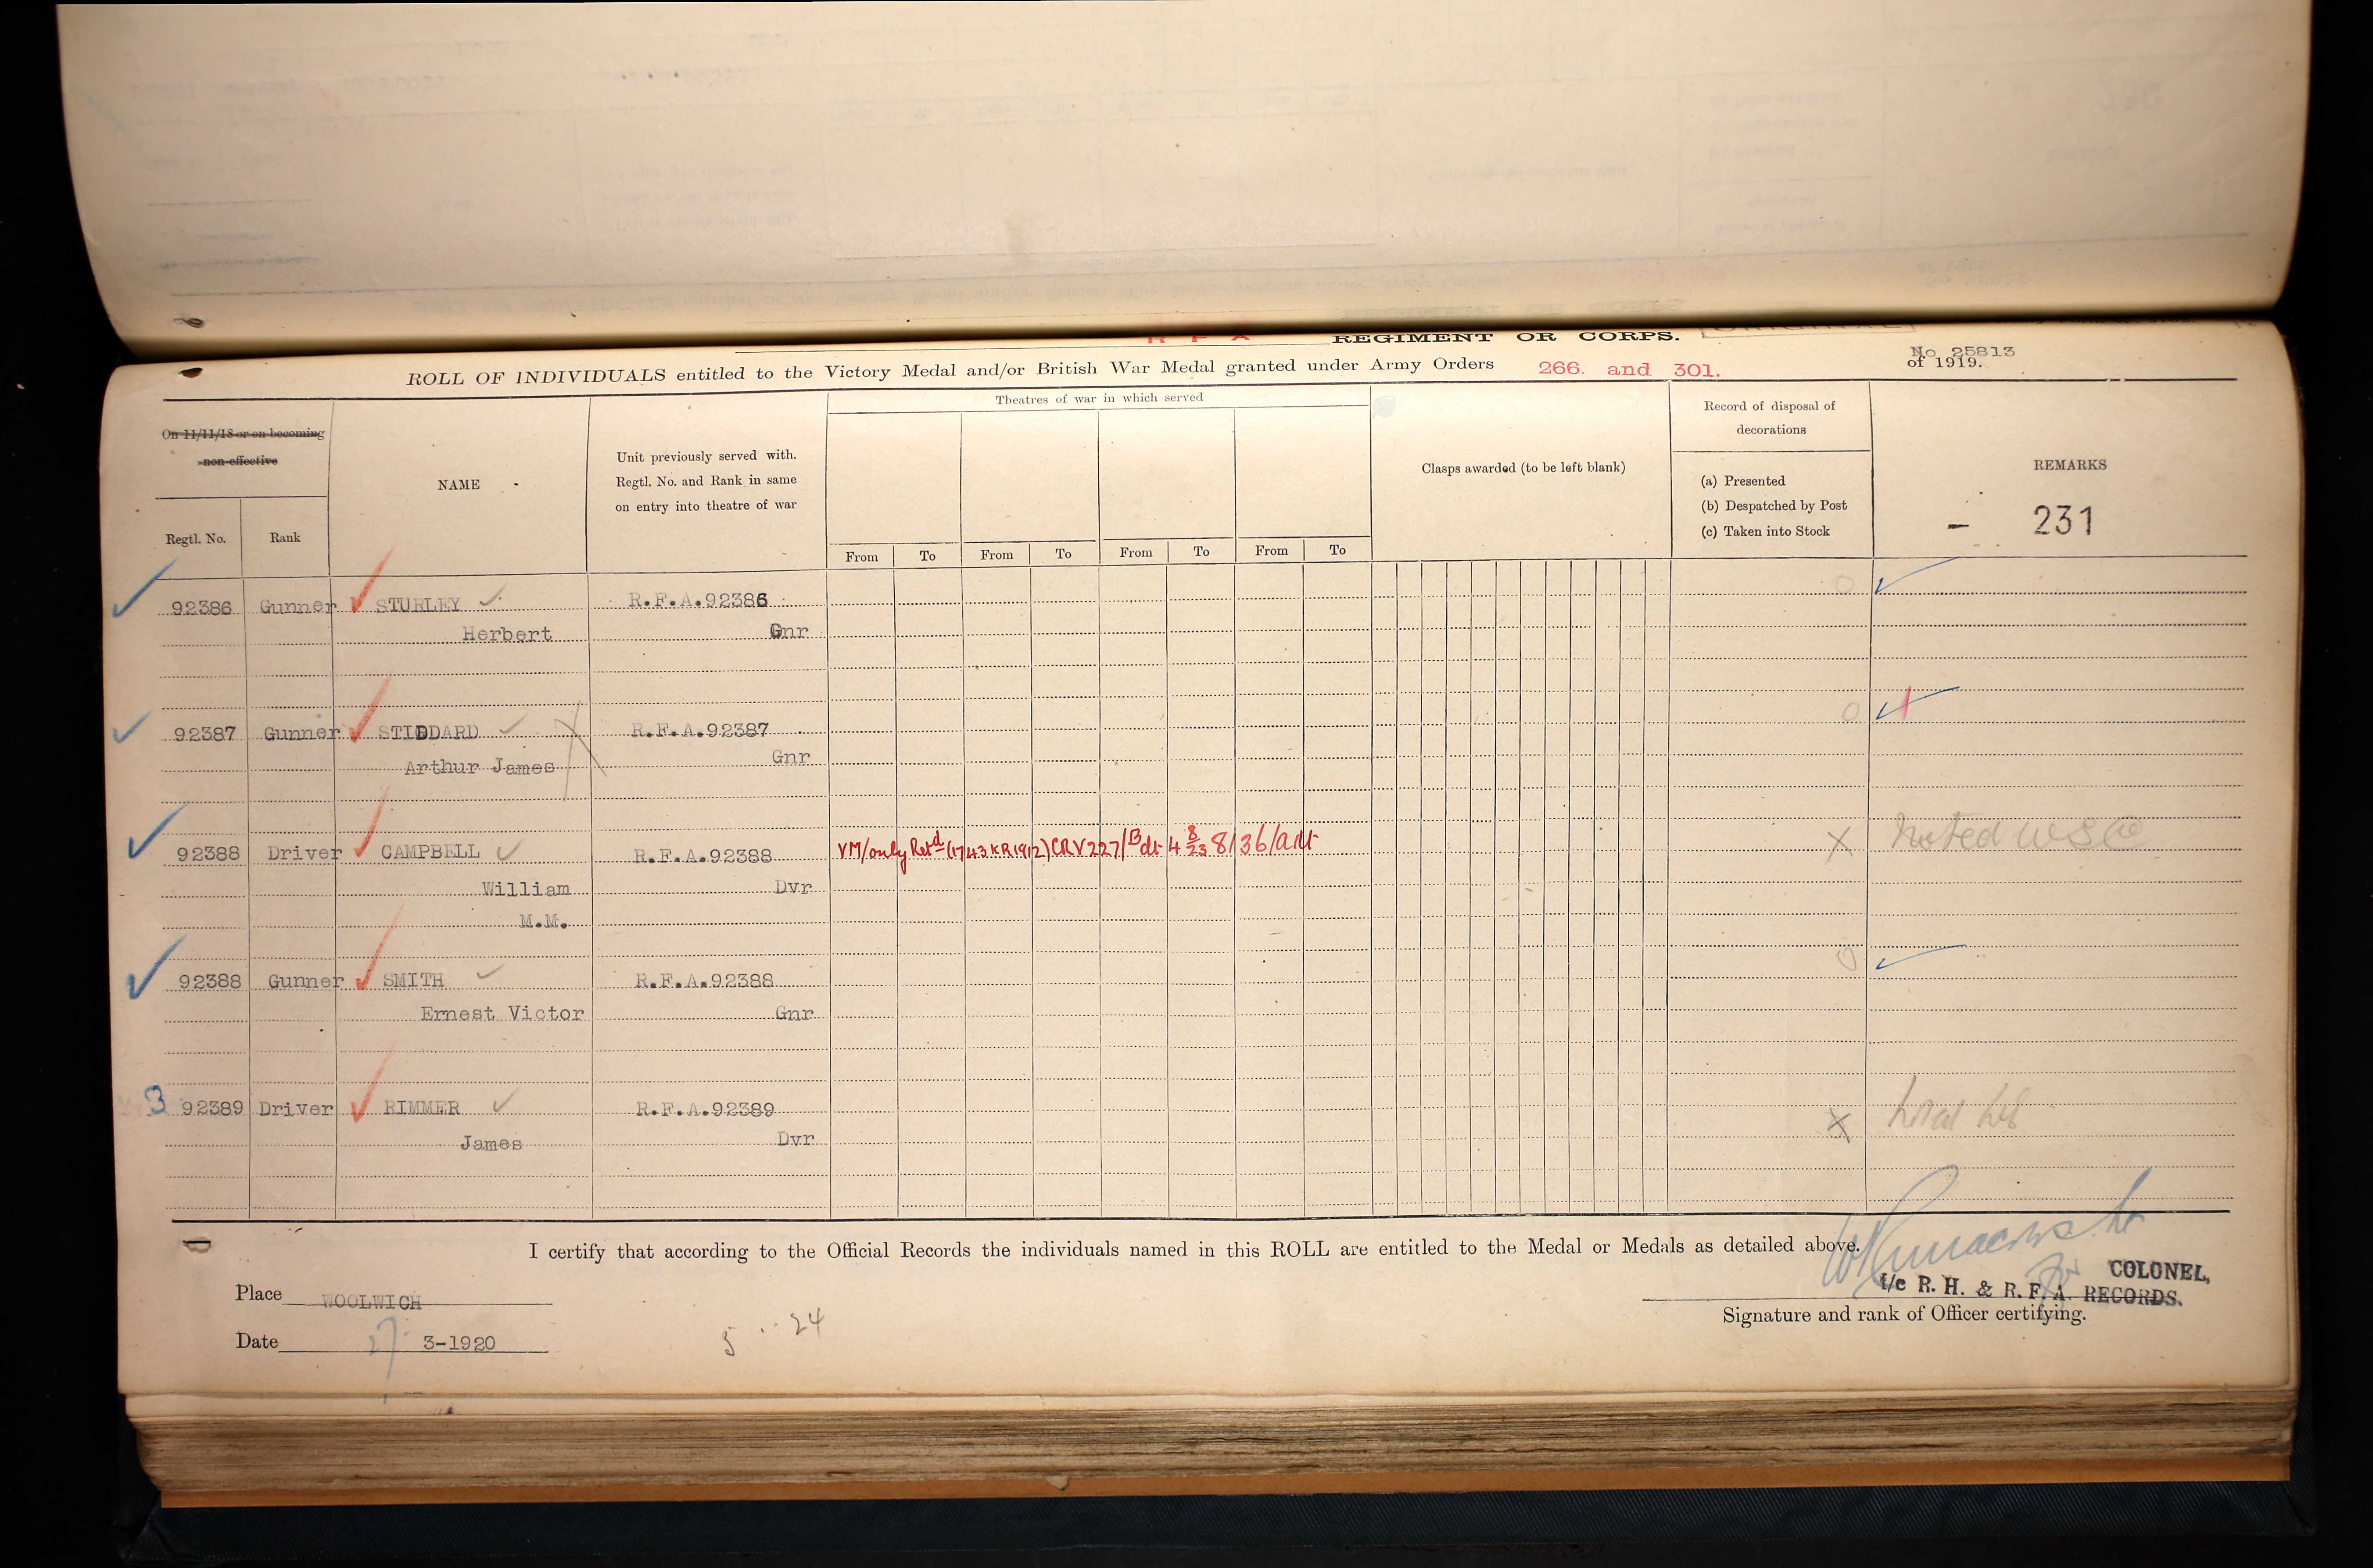 R F A REGIMENT OR CORPS.
No 25813
ROLL OF INDIVIDUALS entitled to the Victory Medal and/or British War Medal granted under Army Orders 266. and 301. of 1919.
On 11/11/18 or on becoming
non-effective
Regtl. No.
Rank
NAME
Unit previously served with.
Regtl. No. and Rank in same
on entry into theatre of war
Theatres of war in which served
From To From To From To From To
Clasps awarded (to be left blank)
Record of disposal of
decorations
(a) Presented
(b) Despatched by Post
(c) Taken into Stock
REMARKS
- 231
92386 Gunner STURLEY R.F.A.92386
Herbert Gnr
92387 Gunner STIDDARD R.F.A.92387
Arthur James Gnr
92388 Driver CAMPBELL R.F.A.92388 VM/only Retd (1743 KR 1912) CRV227/B dt 4 8/23 8136/Adt Noted
William Dvr
M.M.
92388 Gunner SMITH R.F.A.92388
Ernest Victor Gnr
3 92389 Driver RIMMER R.F.A.92389
James Dvr
I certify that according to the Official Records the individuals named in this ROLL are entitled to the Medal or Medals as detailed above.
Place WOOLWICH
for COLONEL,
i/c R. H. & R. F. A. RECORDS.
Signature and rank of Officer certifying.
Date 27 3-1920
5 24